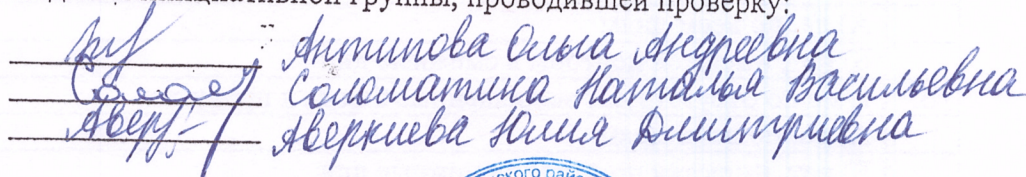 инициативной группы, проводившей проверку:
Антипова Ольга Андреевна
Соломатина Наталья Васильевна
Аверкиева Юлия Дмитриевна
ского рай